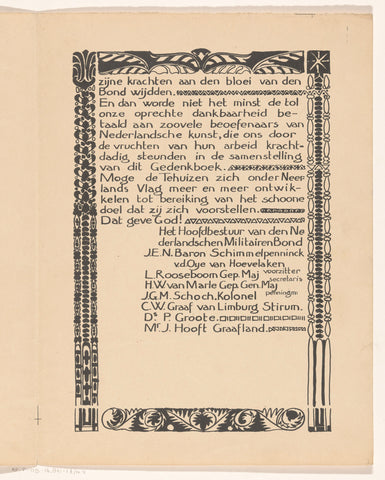 zijne krachten aan den bloei van den
Bond wijdden.
En dan worde niet het minst de tol
onze oprechte dankbaarheid be-
taald aan zoovele beoefenaars van
Nederlandsche kunst, die ons door
de vruchten van hun arbeid kracht-
dadig steunden in de samenstelling
van dit Gedenkboek.
Moge de Tehuizen zich onder Neer
lands Vlag meer en meer ontwik-
kelen tot bereiking van het schoone
doel dat zij zich voorstellen.
Dat geve God!
Het Hoofdbestuur van den Ne
derlandschen Militairen Bond
J.E.N. Baron Schimmelpenninck
v.d. Oye van Hoevelaken
voorzitter
L. Rooseboom Gep. Maj
secretaris
H.W. van Marle Gep. Gen. Maj
penningmr
J.G.M. Schoch, Kolonel
C.W. Graaf van Limburg Stirum.
Ds P. Groote.
Mr J. Hooft Graafland.